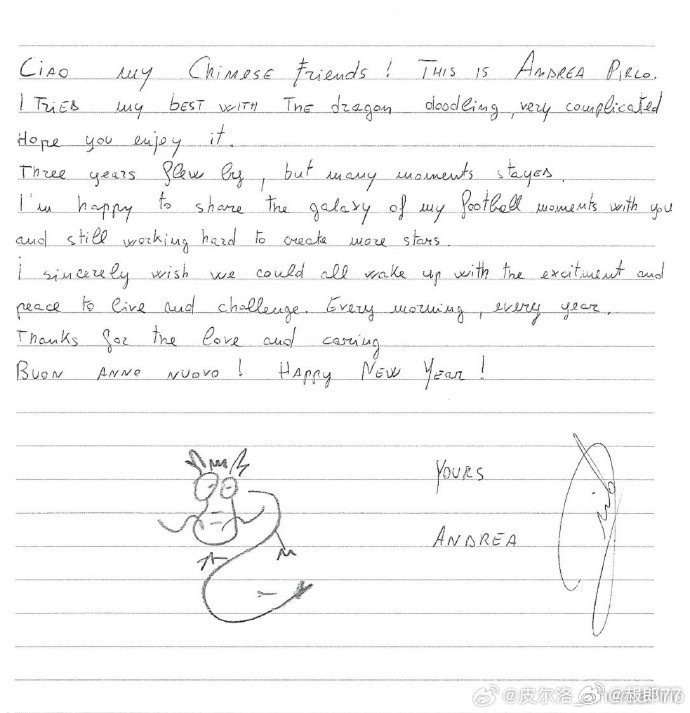 Ciao my Chinese friends! This is Andrea Pirlo.
I tried my best with the dragon doodling, very complicated
Hope you enjoy it.
Three years flew by, but many moments stayed.
I'm happy to share the galaxy of my football moments with you
and still working hard to create more stars.
i sincerely wish we could all wake up with the excitment and
peace to live and challenge. Every morning, every year.
Thanks for the love and caring
Buon anno nuovo! Happy New Year!
Yours
Andrea
@皮尔洛_